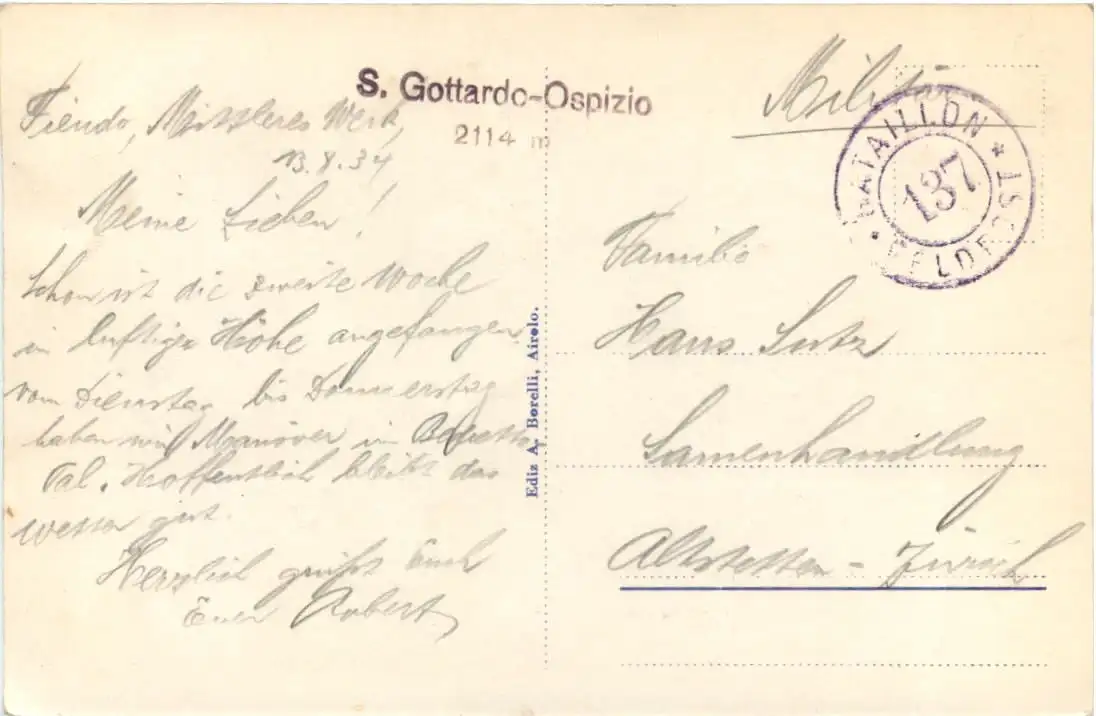 S. Gottardo-Ospizio
2114 m
Fieudo, Mittleres Werk,
13.8.34
Meine Lieben!
Schon ist die zweite Woche
in luftiger Höhe angefangen
vom Dienstag bis Donnerstag
haben wir Manöver im
Tal. Hoffentlich bleibt das
Wetter gut.
Herzlich grüsst Euch
Euer Robert
Ediz A. Borelli, Airolo.
Militär
BATAILLON * FELDPOST *
137
Familie
Hans Lutz
Samenhandlung
Altstetten - Zürich